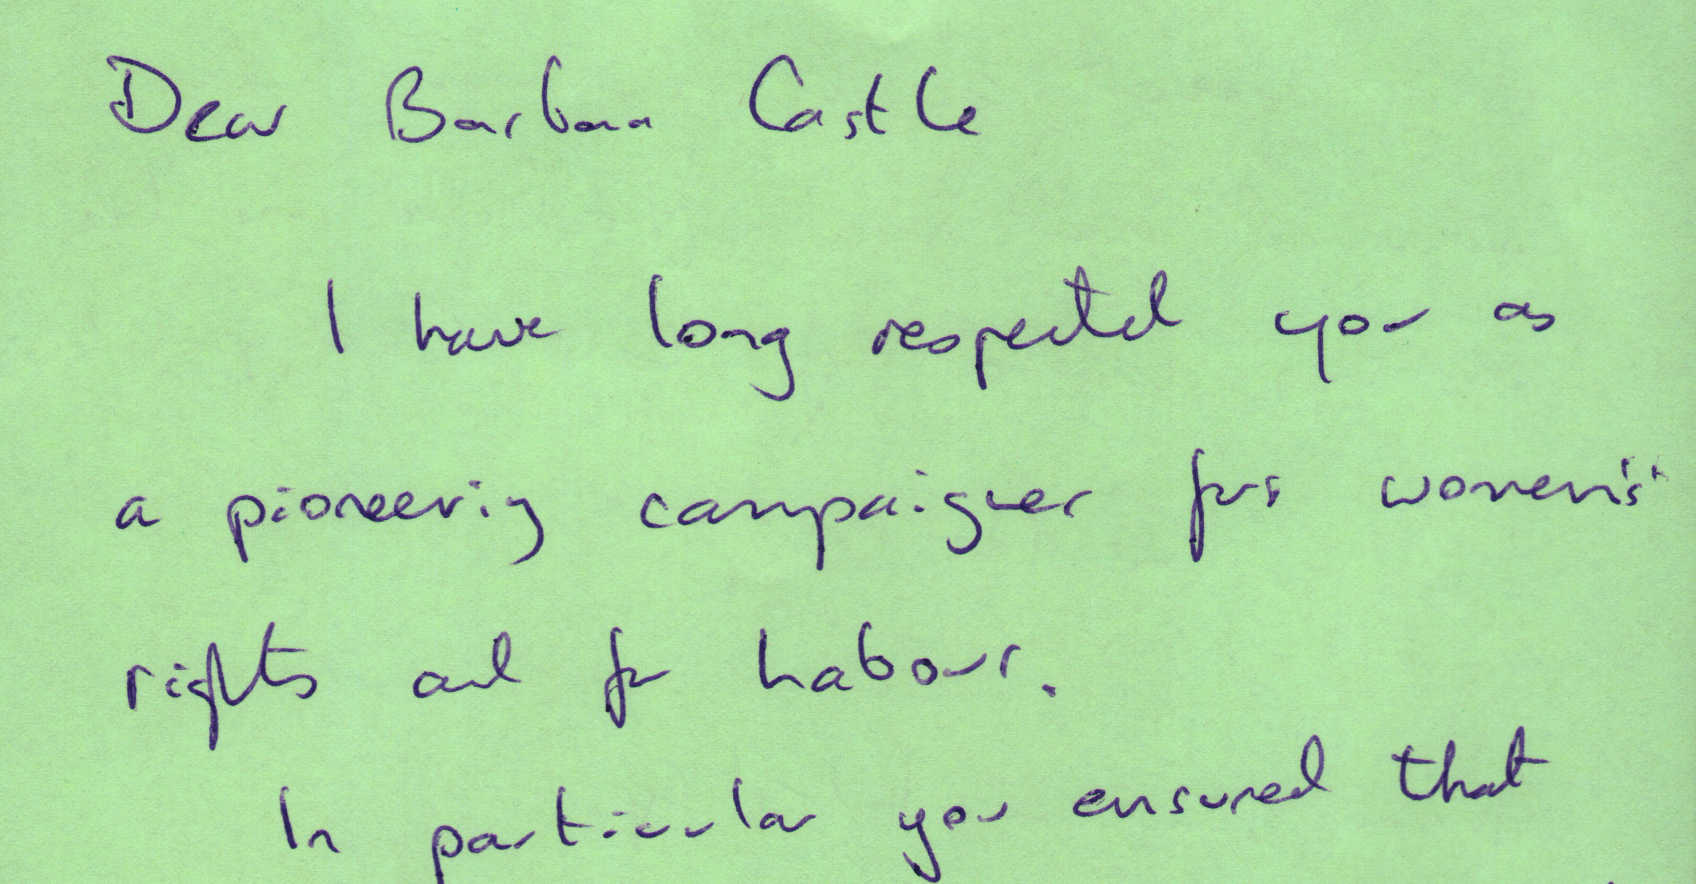 Dear Barbara Castle
I have long respected you as
a pioneering campaigner for women's
rights and for Labour.
In particular you ensured that